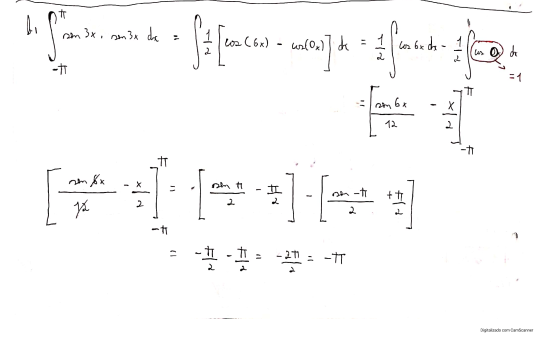 b. ∫_{-π}^{π} sen 3x . sen 3x dx = ∫ 1/2 [cos (6x) - cos(0x)] dx = 1/2 ∫ cos 6x dx - 1/2 ∫ cos 0 dx
= 1
= [sen 6x / 12 - x/2]_{-π}^{π}
[sen 6x / 12 - x/2]_{-π}^{π} = -[sen π / 2 - π/2] - [sen -π / 2 + π/2]
= -π/2 - π/2 = -2π/2 = -π
Digitalizado com CamScanner